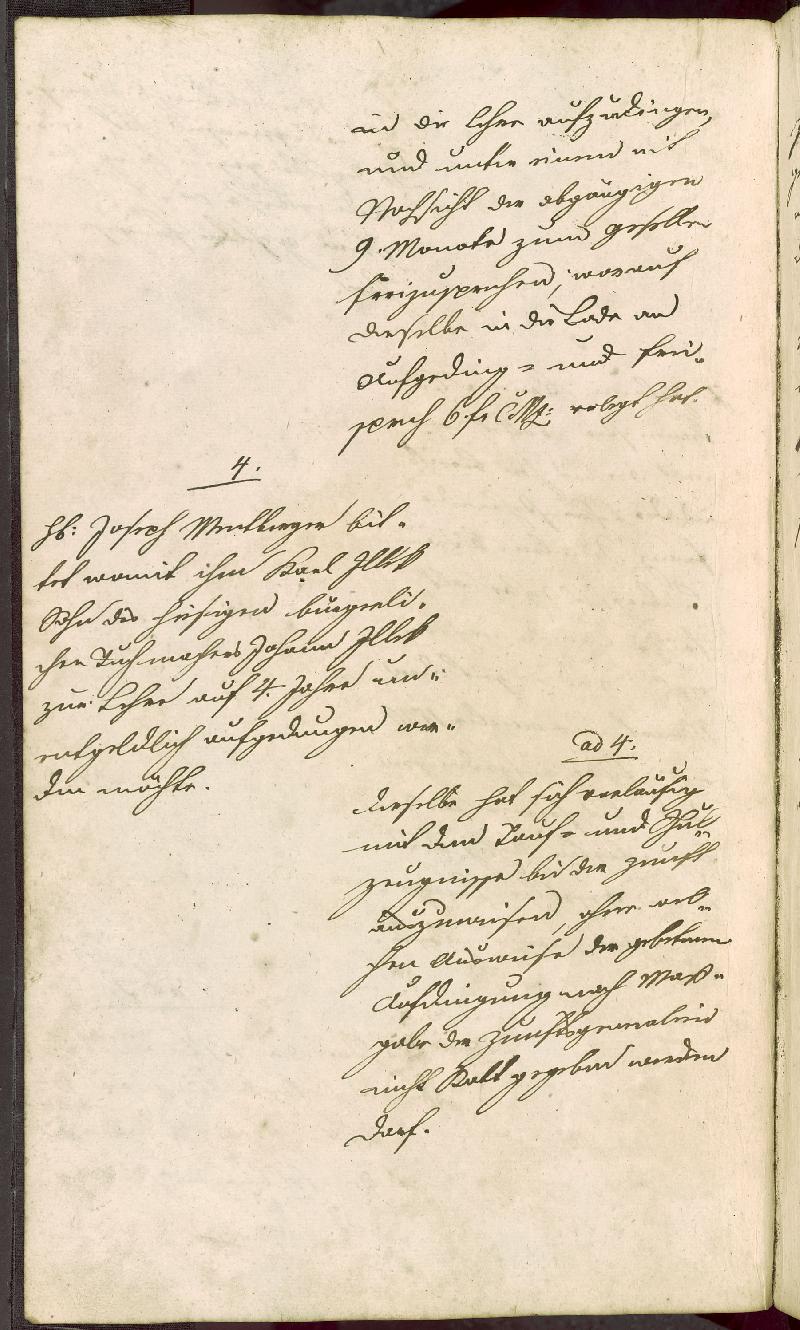 in die Lehre aufzudingen,
und unter einem mit
Nachsicht der abgängigen
9. Monate zum Gesellen
freizusprechen, worauf
derselbe in die Lade an
Aufgeding- und Frei-
spruch 6 f CMz: erlegt hat.
4.
H: Joseph bit-
tet womit ihm Karl Illek
Sohn des hiesigen bürgerli-
chen Tuchmachers Johann Illek
zur Lehre auf 4. Jahre un-
entgeldlich aufgedungen wer-
den möchte.
ad 4.
Derselbe hat sich vorläufig
mit dem Tauf- und Schul-
zeugnisse bei der Zunft
auszuweisen, ohne wel-
chen Ausweise der gebetenen
Aufdingung nach Maß-
gabe der Zunftsgeneralien
nicht statt gegeben werden
darf.